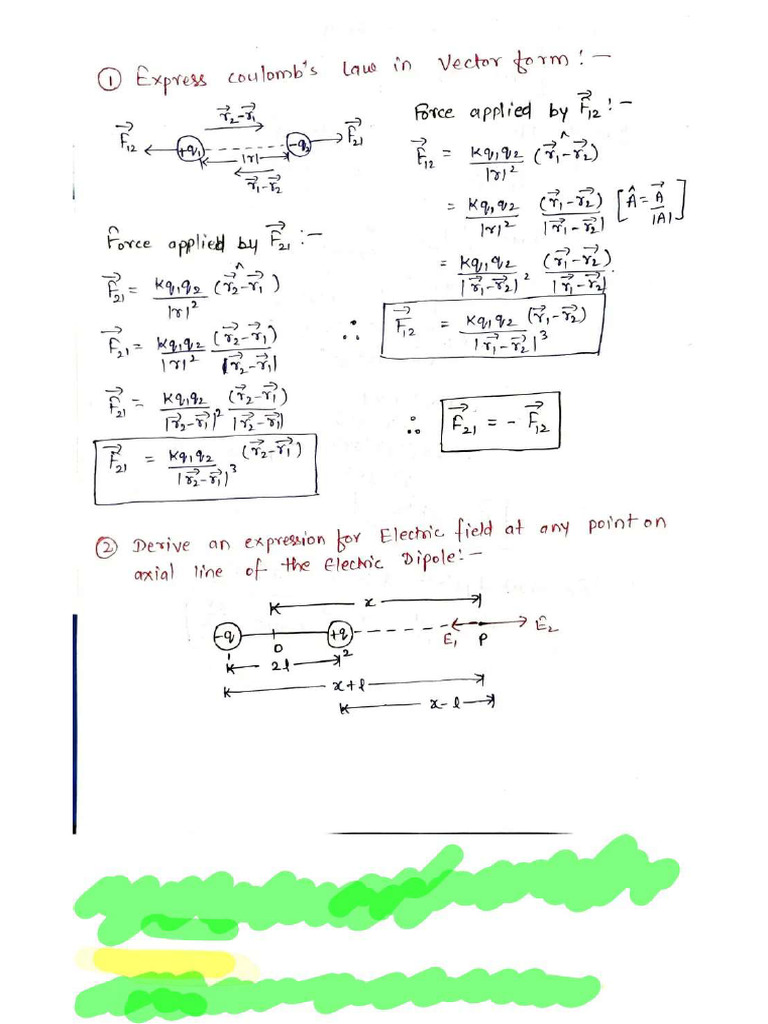 ① Express coulomb's law in vector form:-
r⃗₂-r⃗₁
F⃗₁₂ +q₁ |r| -q₂ F⃗₂₁
r⃗₁-r⃗₂
Force applied by F⃗₂₁:-
F⃗₂₁ = kq₁q₂/|r|² (r⃗₂-r⃗₁)^
F⃗₂₁ = kq₁q₂/|r|² (r⃗₂-r⃗₁)/|r⃗₂-r⃗₁|
F⃗₂₁ = kq₁q₂/|r⃗₂-r⃗₁|² (r⃗₂-r⃗₁)/|r⃗₂-r⃗₁|
F⃗₂₁ = kq₁q₂/|r⃗₂-r⃗₁|³ (r⃗₂-r⃗₁)
Force applied by F⃗₁₂:-
F⃗₁₂ = kq₁q₂/|r|² (r⃗₁-r⃗₂)^
= kq₁q₂/|r|² (r⃗₁-r⃗₂)/|r⃗₁-r⃗₂| [Â = A⃗/|A|]
= kq₁q₂/|r⃗₁-r⃗₂|² (r⃗₁-r⃗₂)/|r⃗₁-r⃗₂|.
∴ F⃗₁₂ = kq₁q₂ (r⃗₁-r⃗₂)/|r⃗₁-r⃗₂|³
∴ F⃗₂₁ = - F⃗₁₂
② Derive an expression for Electric field at any point on
axial line of the Electric Dipole:-
x
-q O +q E₁ P E₂
2l 2
x+l
x-l